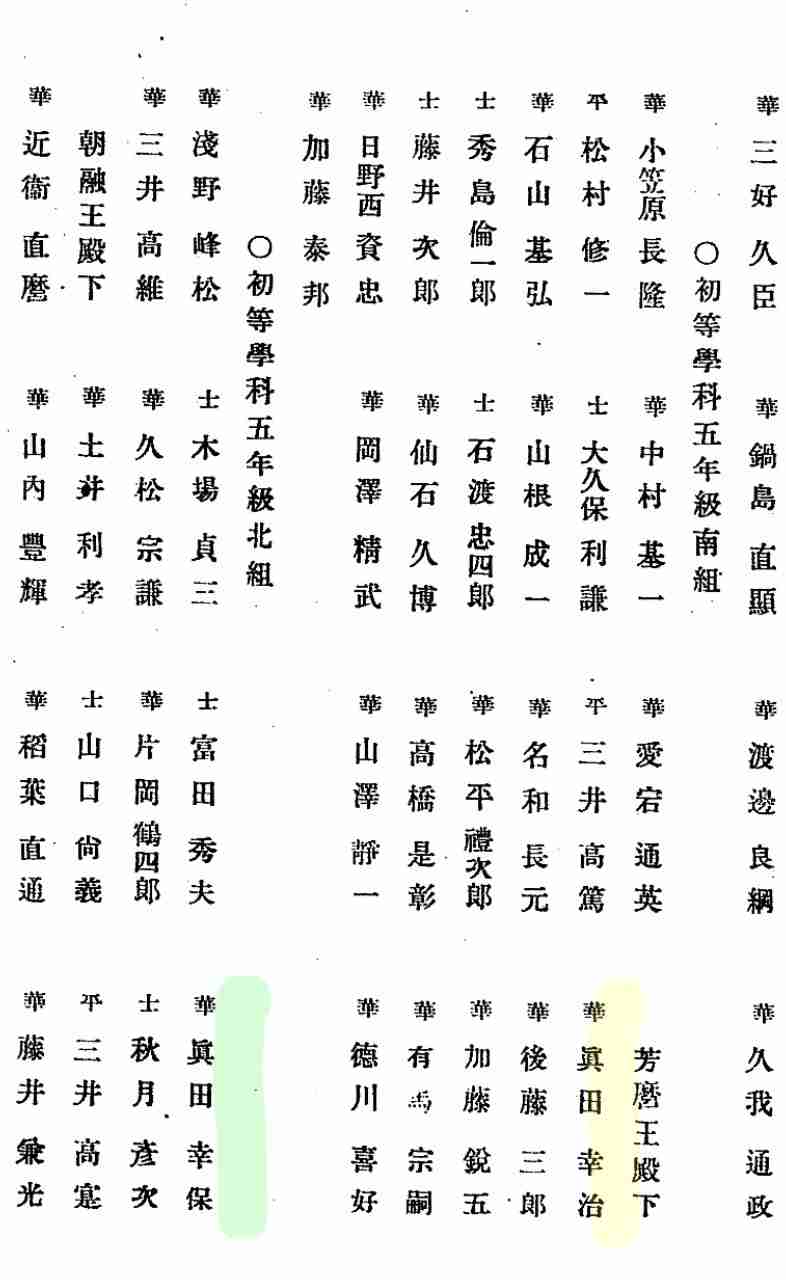 華 三好久臣 華 鍋島直顯 華 渡邊良綱 華 久我通政
〇初等學科五年級南組
華 小笠原長隆 華 中村基一 華 愛宕通英 芳麿王殿下
平 松村修一 士 大久保利謙 平 三井高篤 華 眞田幸治
華 石山基弘 華 山根成一 華 名和長元 華 後藤三郎
士 秀島倫一郎 士 石渡忠四郎 華 松平禮次郎 華 加藤銳五
士 藤井次郎 華 仙石久博 華 高橋是彰 華 有馬宗嗣
華 日野西資忠 華 岡澤精武 華 山澤靜一 華 德川喜好
華 加藤泰邦
〇初等學科五年級北組
華 淺野峰松 士 木場貞三 士 富田秀夫 華 眞田幸保
華 三井高維 華 久松宗謙 華 片岡鶴四郎 士 秋月彥次
朝融王殿下 華 土井利孝 士 山口尙義 平 三井高寔
華 近衞直麿 華 山內豐輝 華 稻葉直通 華 藤井兼光